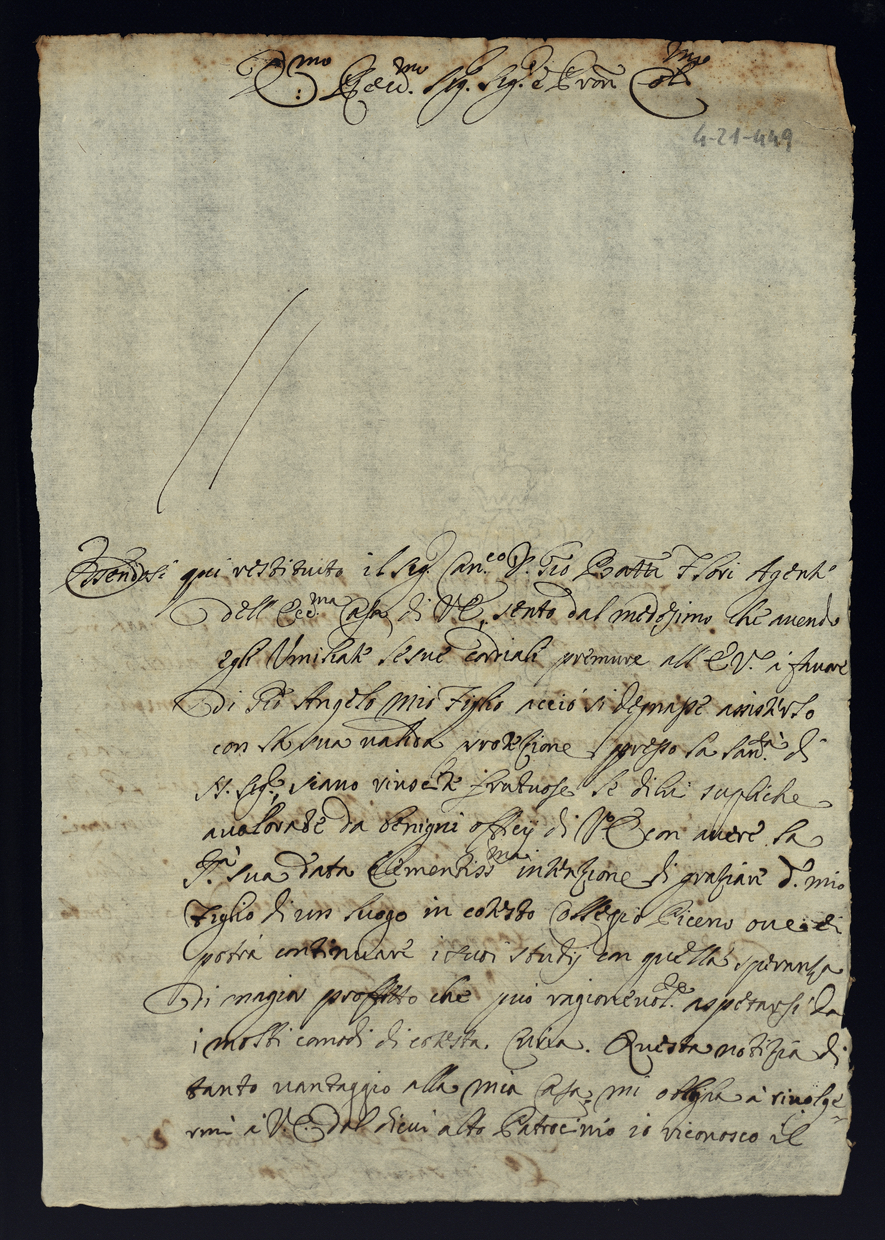 Ecc.mo Sig. Sig. e Pron Col.mo
4-21-449
Essendosi qui restituito il Sig. Can.co D. Gio Batta Flori Agente
dell Ecc.ma Casa di V.E. sento dal medesimo che avendo
egli Umiliate le sue cordiali premure all E.V. a favore
di Gio Angelo mio Figlio acciò si degnasse assisterlo
con la sua valida protezione presso la San.tà di
N. Sig.e, siano riuscite fruttuose le di lui supliche
avalorate da benigni officij di V.E. con avere la
S.tà sua data Clementiss.ma intenzione di graziare d. mio
Figlio di un luogo in cotesto Collegio Piceno ove
potrà continuare i suoi studij con quella speranza
di magior profitto che può ragionevol.te aspetarsi da
i molti comodi di cotesta Curia. Questa notizia di
tanto vantaggio alla mia Casa, mi obliga a rivolge=
rmi a V.E. dal di cui alto Patrocinio io riconosco il